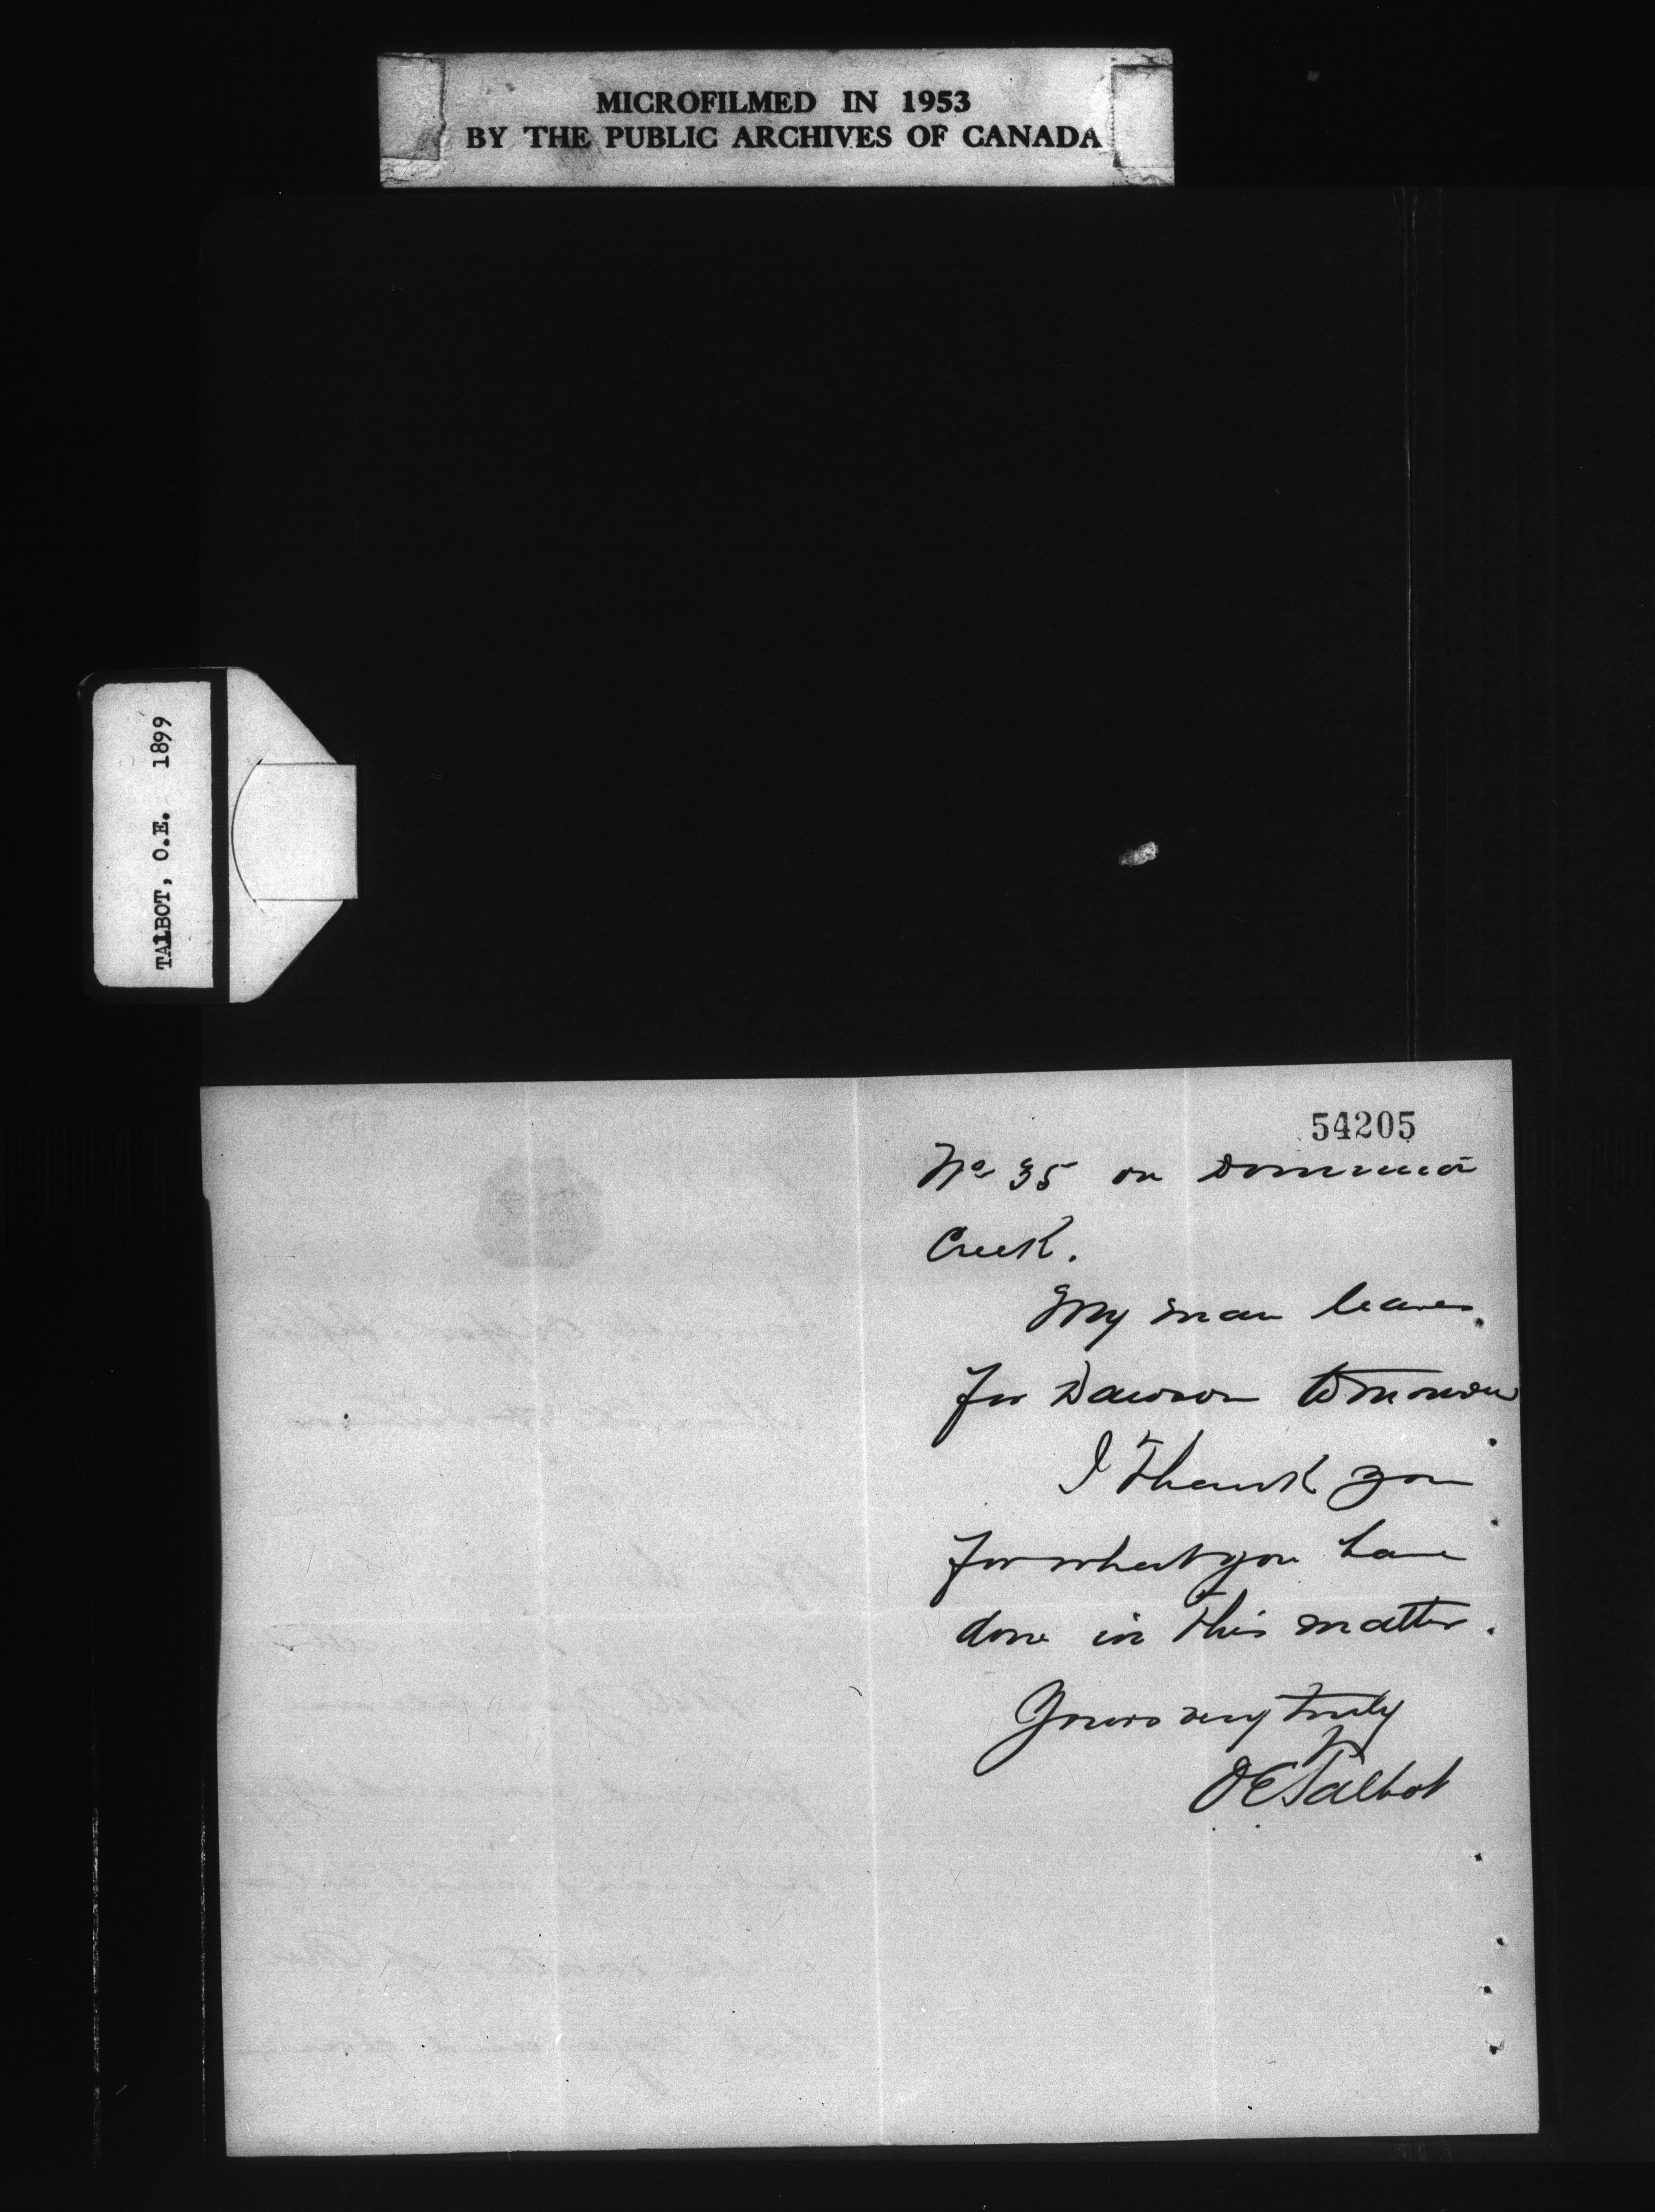 MICROFILMED IN 1953
BY THE PUBLIC ARCHIVES OF CANADA
TALBOT, O.E. 1899
54205
No 35 on Dominion
Creek.
My man leaves
for Dawson tomorrow
I thank you
for what you have
done in this matter.
Yours very truly
OETalbot